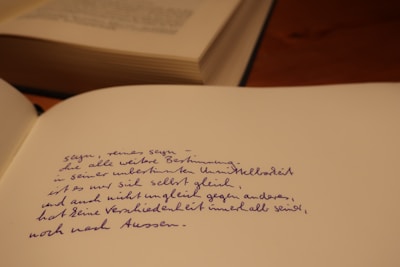 seyn, reines seyn –
die alle weitere Bestimmung.
in seiner unbestimten Unmittelbarkeit
ist es nur sich selbst gleich,
und auch nicht ungleich gegen anderes,
hat keine Verschiedenheit innerhalb seiner,
noch nach Aussen.